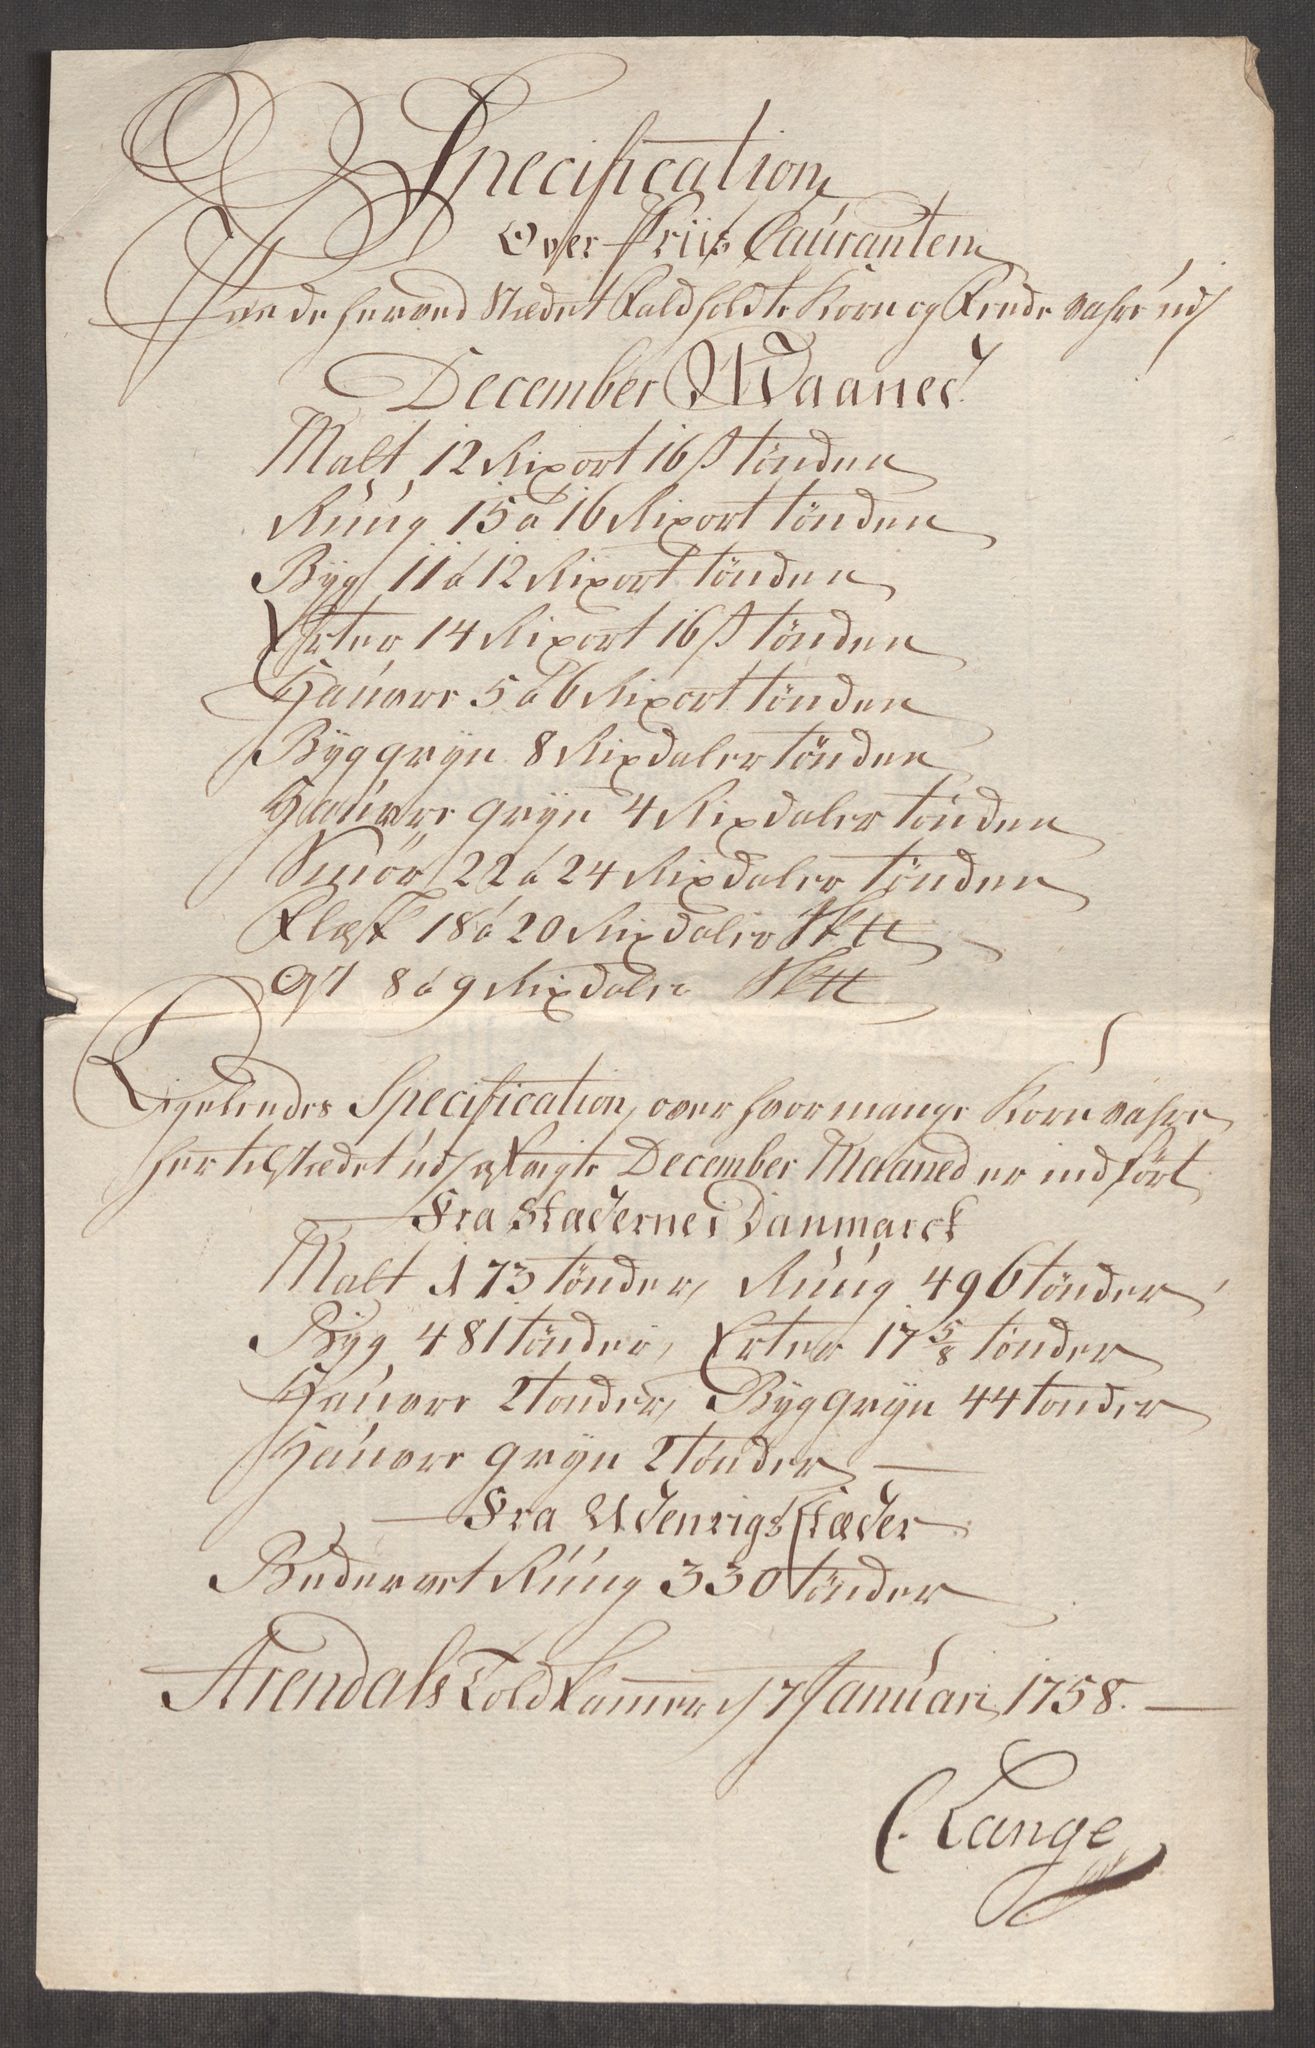 Specification
Over Priis Caúranten
Paa de herved Stædet Faldholdte Korn og Fende vahre udj
December Maaned
Malt 12 Rixort 16 s tönden
Rúúg 15 á 16 Rixort tönden
Byg 11 á 12 Rixort tönden
Erter 14 Rixort 16 s tönden
Haúvre 5 á 6 Rixort tönden
Byggryn 8 Rixdaler tönden
Haúvre gryn 4 Rixdaler tönden
Smör 22 á 24 Rixdaler tönden
Flesk 18 á 20 Rixdaler Sktt
Ost 8 á 9 Rixdaler Sktt
Ligeleedes Specification, over hvor mange Korn vahre
her til stædet udj December Maaned er indfört
Fra Stæderne i Danmarck
Malt 173 tönder, Rúúg 496 tönder
Byg 481 tönder, Erter 17 5/8 tönder
Haúvre 2 tönder, Byggryn 44 tonder
Haúvre gryn 2 tönder
Fra Udenrigs Stæder
Bedervet Rúúg 330 tönder
Arendals Told Kammer 7 Janúari 1758.
C. Lange